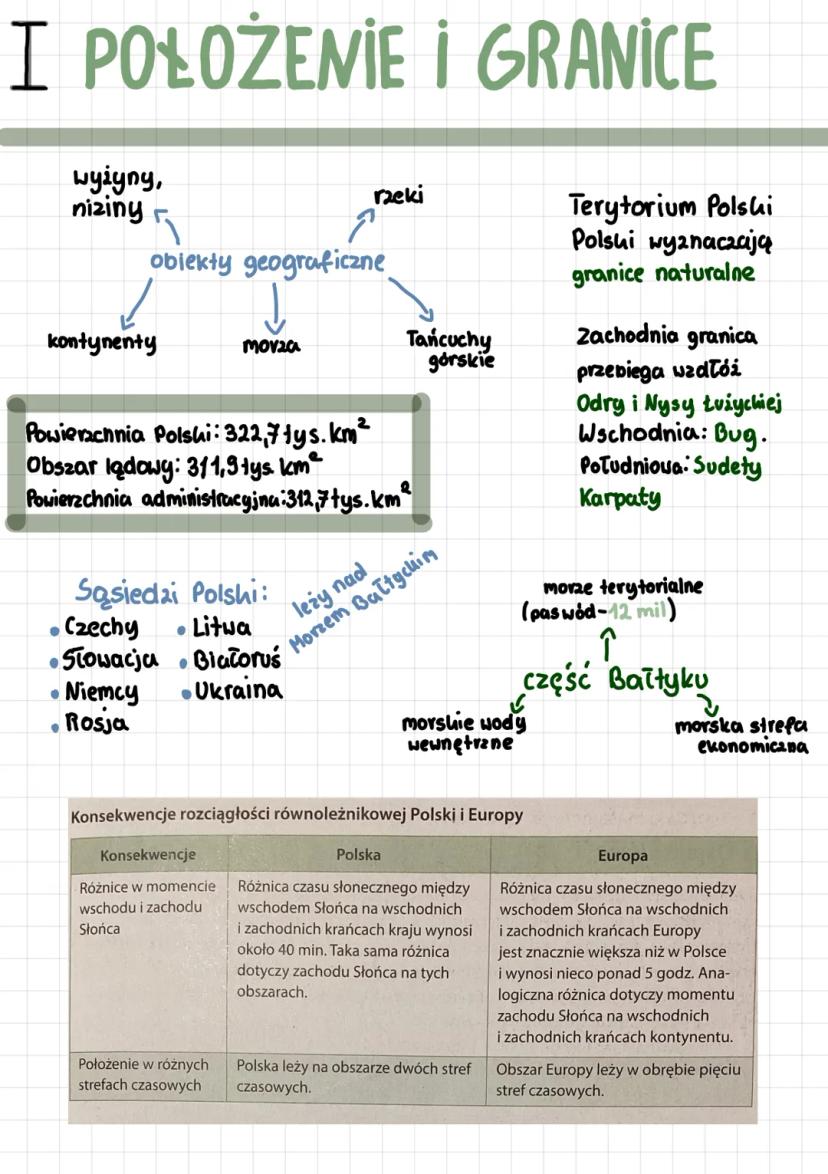 I POŁOŻENIE i GRANICE
wyżyny,
niziny
rzeki
obiekty geograficzne
kontynenty
morza
Łańcuchy
górskie
Terytorium Polski
Polski wyznaczają
granice naturalne
Zachodnia granica
przebiega wzdłóż
Odry i Nysy Łużyckiej
Wschodnia: Bug.
Południowa: Sudety
Karpaty
Powierzchnia Polski: 322,7 tys. km²
Obszar lądowy: 311,9 tys. km²
Powierzchnia administracyjna: 312,7 tys. km²
Sąsiedzi Polski:
• Czechy
• Słowacja
• Niemcy
• Rosja
• Litwa
• Białoruś
• Ukraina
leży nad
Morzem Bałtyckim
morze terytorialne
(pas wód - 12 mil)
część Bałtyku
morskie wody
wewnętrzne
morska strefa
ekonomiczna
Konsekwencje rozciągłości równoleżnikowej Polski i Europy
Konsekwencje
Polska
Europa
Różnice w momencie
wschodu i zachodu
Słońca
Różnica czasu słonecznego między
wschodem Słońca na wschodnich
i zachodnich krańcach kraju wynosi
około 40 min. Taka sama różnica
dotyczy zachodu Słońca na tych
obszarach.
Różnica czasu słonecznego między
wschodem Słońca na wschodnich
i zachodnich krańcach Europy
jest znacznie większa niż w Polsce
i wynosi nieco ponad 5 godz. Ana-
logiczna różnica dotyczy momentu
zachodu Słońca na wschodnich
i zachodnich krańcach kontynentu.
Położenie w różnych
strefach czasowych
Polska leży na obszarze dwóch stref
czasowych.
Obszar Europy leży w obrębie pięciu
stref czasowych.